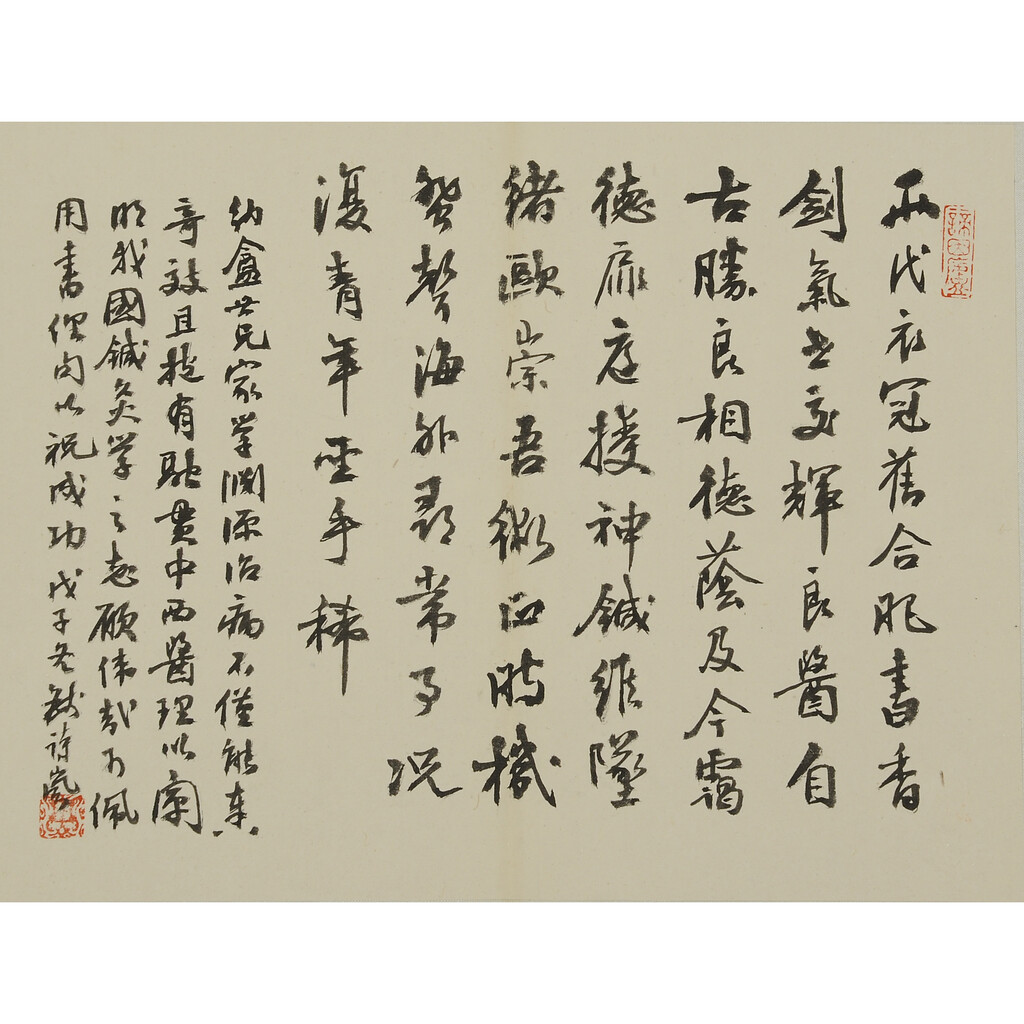 兩代衣冠舊合肥書香
劍氣世交輝良醫自
古勝良相德蔭及今靄
德扉庭授神鍼維墜
緒歐崇吾術正時機
蜚聲海外尋常事況
復青年聖手稀
納盦世兄家學淵源治病不僅能奏
奇效且抱有融貫中西醫理以闡
明我國鍼灸學之志願偉哉可佩
用書俚句以祝成功戊子冬